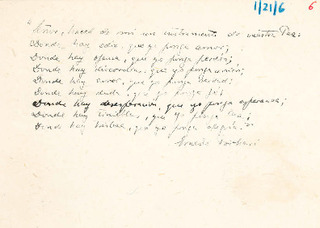 1/21/6 6
"Señor, haced de mi un instrumento de vuestra Paz:
Donde hay odio, que yo ponga amor;
Donde hay ofensa, que yo ponga perdón;
Donde hay discordia, que yo ponga unión;
Donde hay error, que yo ponga Verdad;
Donde hay duda, que yo ponga fe;
Donde hay desesperación, que yo ponga esperanza;
Donde hay tinieblas, que yo ponga luz;
Donde hay tristeza, que yo ponga alegría."
Ernesto